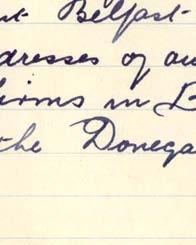 Belfast
dresses of au
firms in B
the Donega